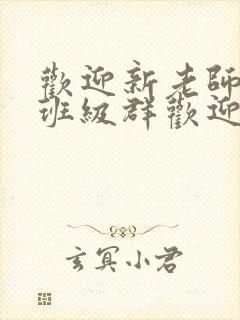 歡迎新老師
班級群歡迎
玄冥小君